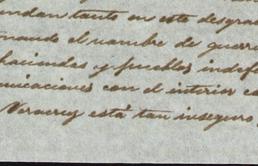 undan tanto en este desgra
mando el nombre de guerri
haciendas y pueblos indef
nicaciones con el interior co
Veracruz está tan inseguro,